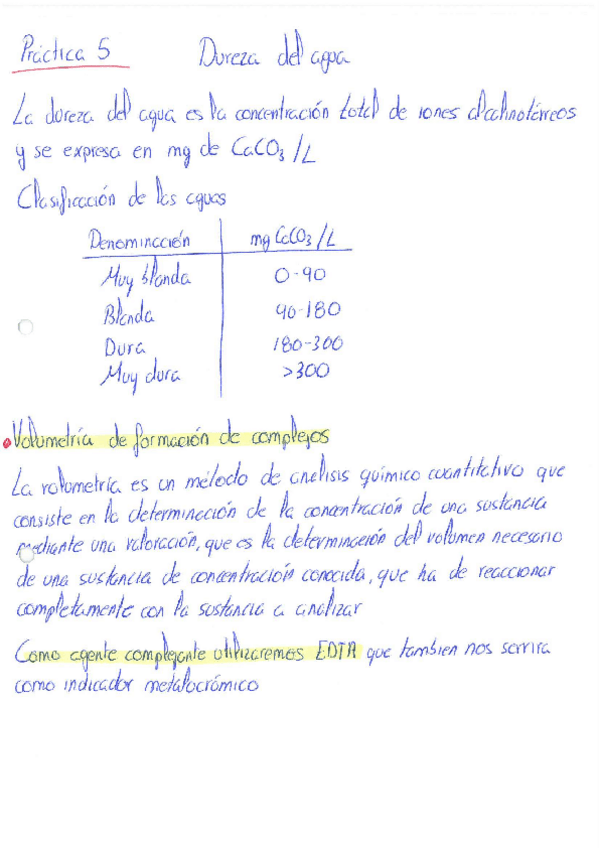 Práctica 5 Dureza del agua
La dureza del agua es la concentración total de iones alcalinotérreos
y se expresa en mg de CaCO3/L
Clasificación de las aguas
Denominación mg CaCO3/L
Muy blanda 0-90
Blanda 90-180
Dura 180-300
Muy dura >300
Volumetría de formación de complejos
La volumetría es un método de analisis químico cuantitativo que
consiste en la determinación de la concentración de una sustancia
mediante una valoración, que es la determinación del volumen necesario
de una sustancia de concentración conocida, que ha de reaccionar
completamente con la sustancia a analizar
Como agente complejante utilizaremos EDTA que tambien nos servira
como indicador metalocrómico